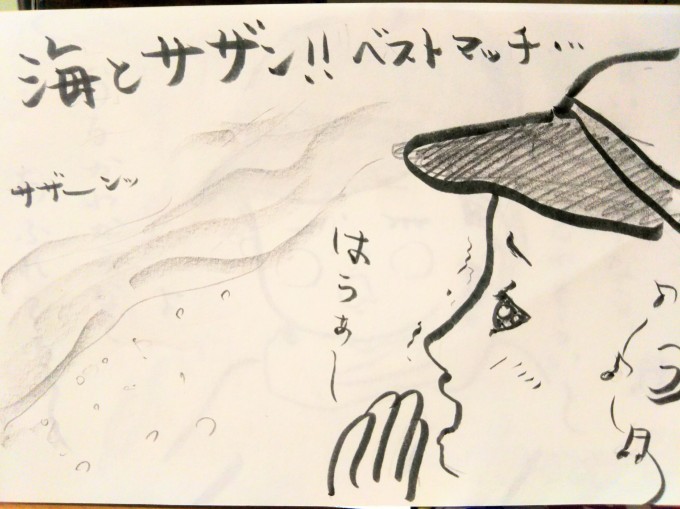 海とサザン!! ベストマッチ…
サザーンッ
はうぁー